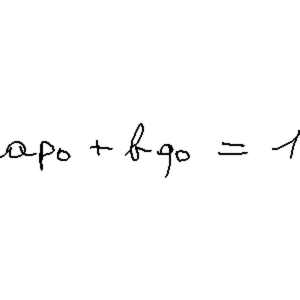 ap₀ + bq₀ = 1